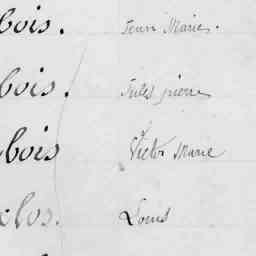 bois. Jean Marie.
bois. Jules pierre
bois Victor Marie
clos. Louis